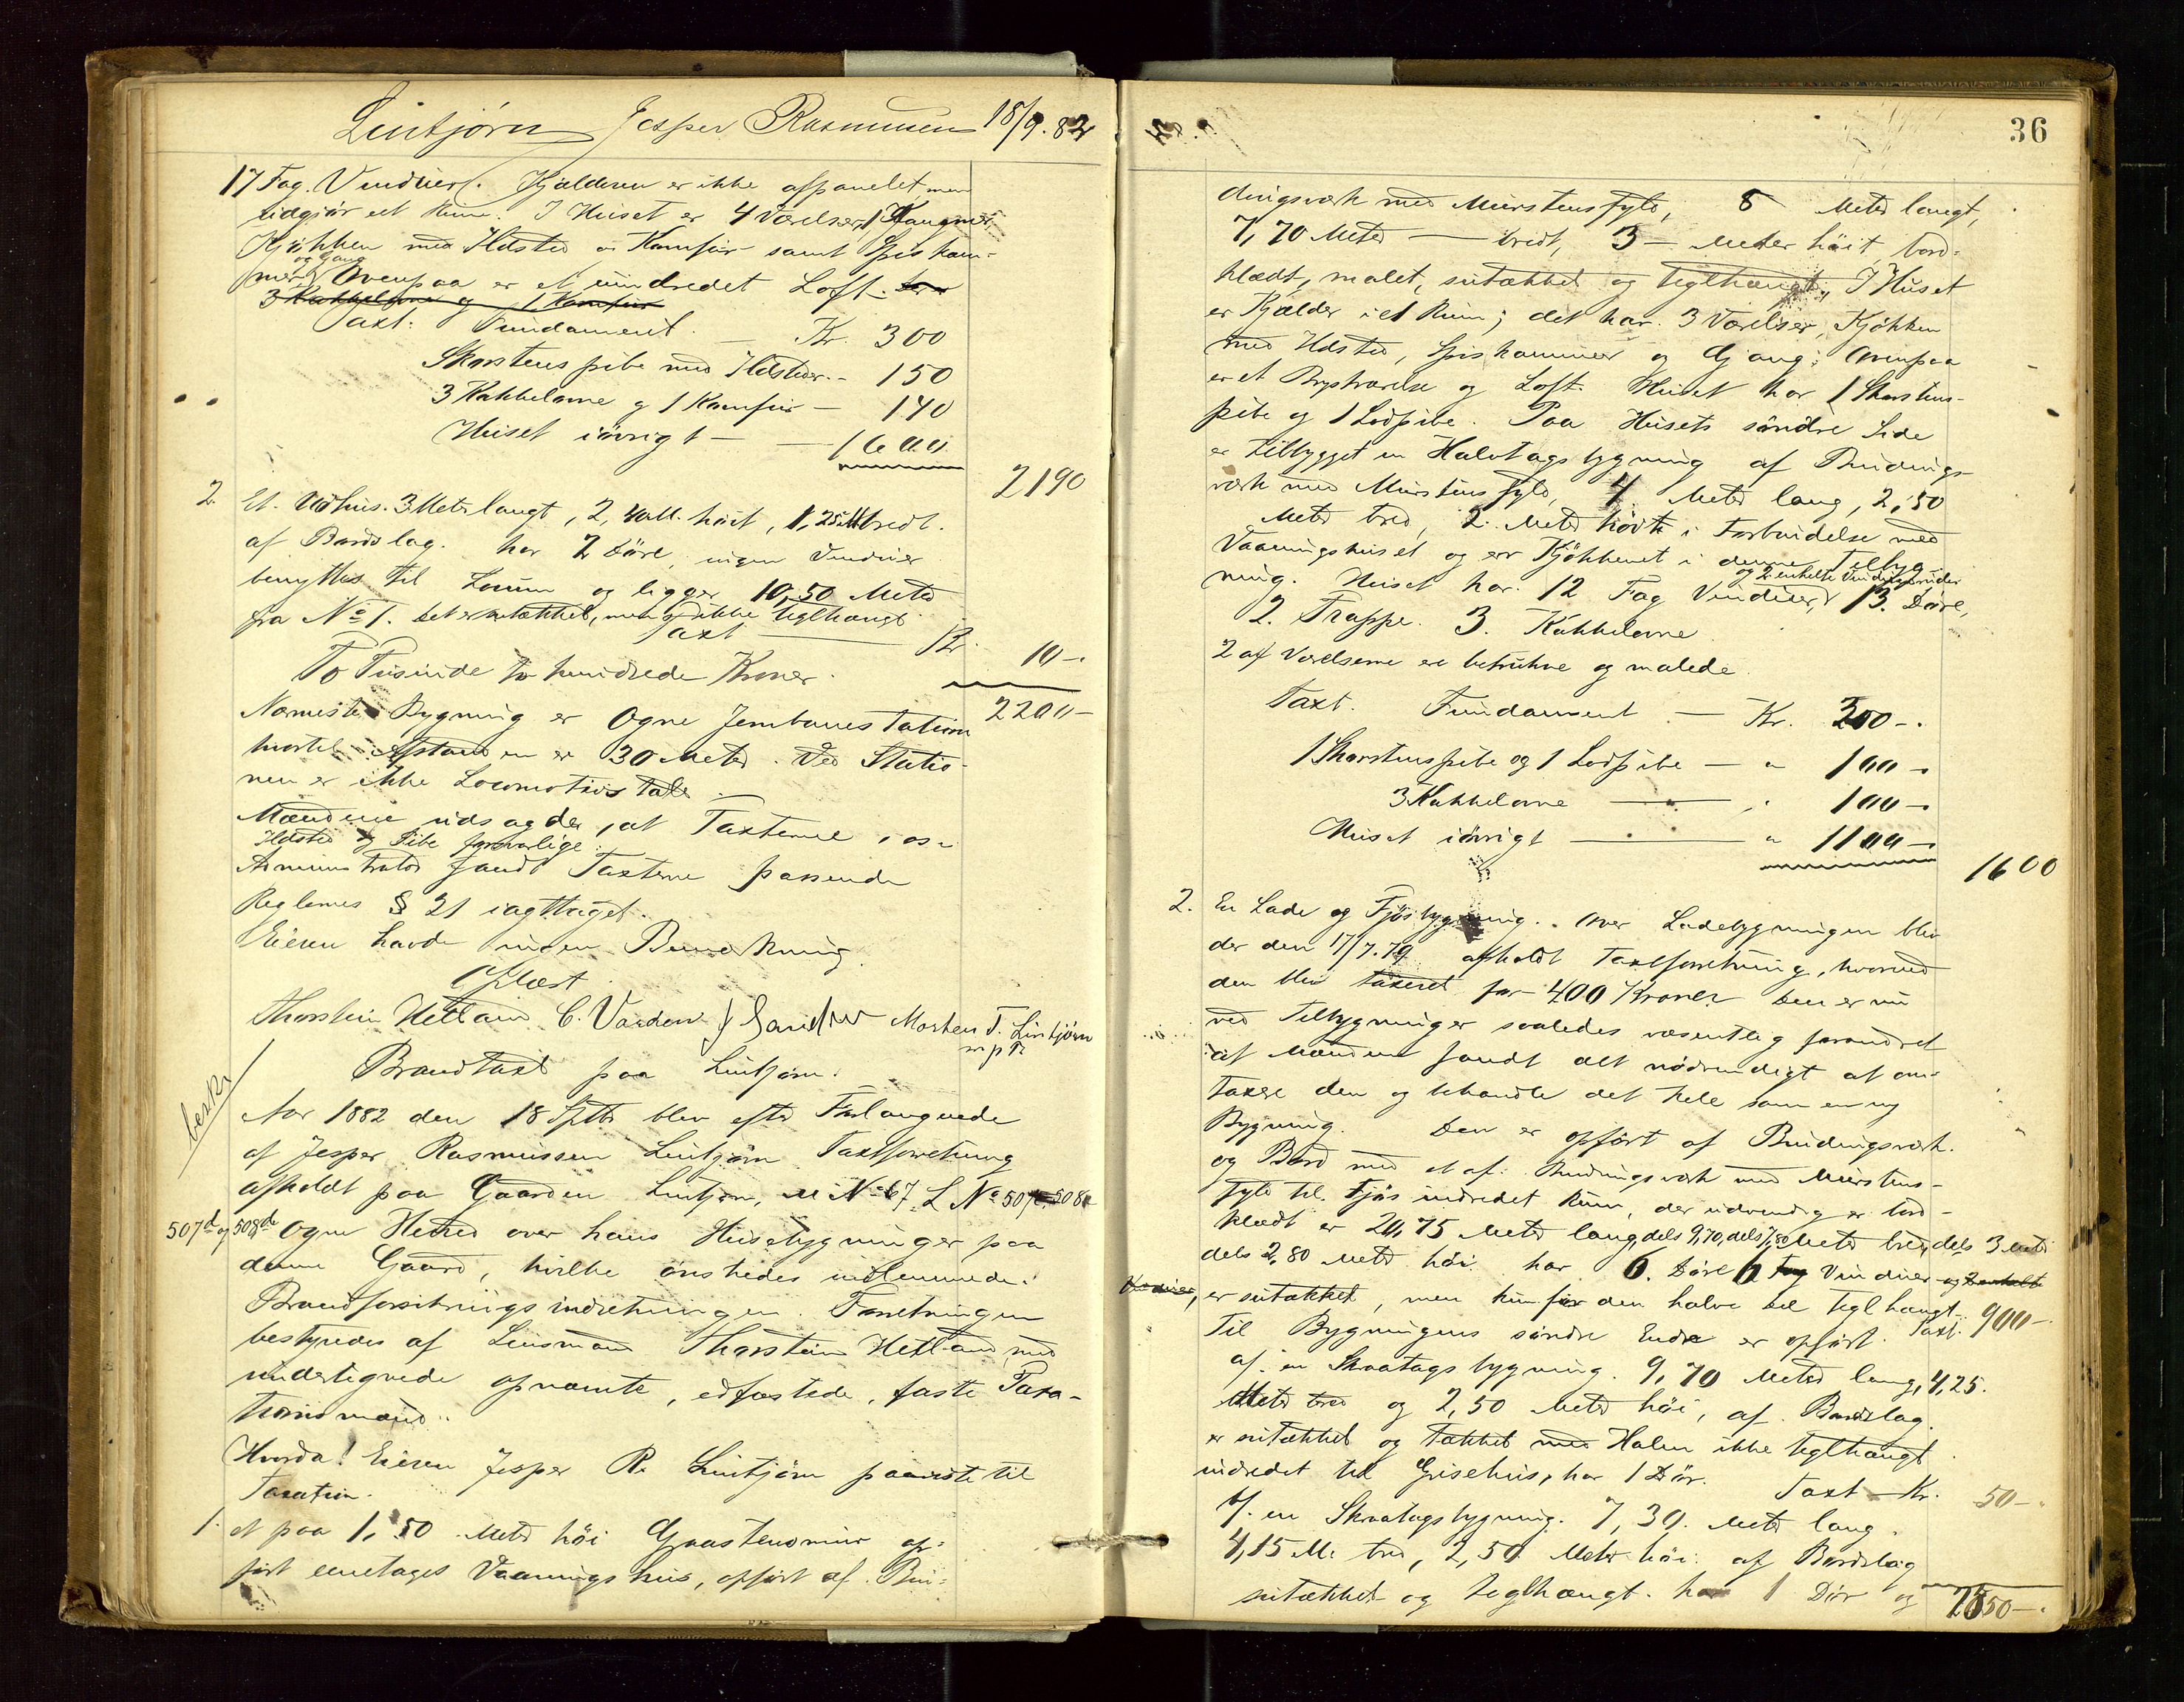 Lintjørn Jesper Rasmussen 18/9.82
17 Fag Vinduer. Kjælderen er ikke afpanelet men
udgjør eet Rum. I Huset er 4 Værelser, 1
Kjøkken med Ildsted og Komfur samt Spiskam-
og Gang
mer. Ovenpaa er et uindredet Loft.
3 Kakkelovne og 1 Komfur
Taxt: Fundament — Kr. 300
Skorstenspibe med Ildsteder - 150
3 Kakkelovne og 1 Komfur — 140
Huset iøvrigt — 1600
2190
2 Et Udhus. 3 Meter langt, 2,40 M. høit, 1,25 M bredt.
af Bordslag. har 2 Døre, ingen Vinduer
benyttes til Locum og ligger 10,50 Meter
fra No 1. det er sutækket, men ikke teglhængt
Taxt — Kr. 10-
To Tusinde to hundrede Kroner.
2200-
Nærmeste Bygning er Ogne Jernbanestation
hvortil Afstanden er 30 Meter. Ved Statio-
nen er ikke Locomotivstald.
Mændene udsagde, at Taxterne
Ildsted og Pibe forsvarlige.
Administrator fandt Taxterne passende
Reglernes § 21 iagttaget.
Eieren havde ingen Bemærkning.
Oplæst
Thorstein Hetland C. Varden Morten T. Lintjørn
m p P
Brandtaxt paa Lintjørn.
beskr
Aar 1882 den 18 Sptbr blev efter Forlangende
af Jesper Rasmussen Lintjørn Taxtforretning
afholdt paa Gaarden Lintjørn, M No 67 L No 507
507d og 508d Ogne Herred over hans Husebygninger paa
denne Gaard, hvilke ønskedes indlemmede i
Brandforsikringsindretningen. Forretningen
bestyredes af Lensmand Thorstein Hetland med
undertegnede opnævnte, edfæstede, faste Taxa-
tionsmænd.
Hvorda! Eieren Jesper R. Lintjørn paaviste til
Taxation.
1. et paa 1,50 Meter høi Graastensmur op-
ført eenetages Vaaningshus, opført af Bin-
36
dingsværk med Murstensfyld, 8 Meter langt,
7,70 Meter — bredt, 3 — Meter høit, bord-
klædt, malet, sutækket og teglhængt. I Huset
er Kjælder i et Rum; det har 3 Værelser, Kjøkken
med Ildsted, Spiskammer og Gang; Ovenpaa
er et Værelse og Loft. Huset har 1 Skorstens-
pibe og 1 Lodpibe. Paa Husets søndre Side
er tilbygget en Halvtagsbygning af Bindings-
værk med Murstensfyld, 4 Meter lang, 2,50
Meter bred, 2 Meter høi i Forbindelse med
Vaaningshuset og er Kjøkkenet i denne Tilbyg-
og 2 enkelte Vinduesruder
ning. Huset har 12 Fag Vinduer, 13 Døre,
2 Trappe. 3 Kakkelovne
2 af Værelserne ere betrukne og malede.
Taxt. Fundament — Kr. 300-.
1 Skorstenspibe og 1 Lodpibe — " 100-.
3 Kakkelovne — " 100-.
Huset iøvrigt — " 1100-.
1600
2. En Lade og Fjøsbygning. Over Ladebygningen blev
der den 17/7.79 afholdt Taxtforretning, hvorved
den blev taxeret for 400 Kroner. Den er nu
ved Tilbygninger saaledes væsentlig forandret
at Mændene fandt det nødvendigt at om-
taxere den og behandle det hele som en ny
Bygning. Den er opført af Bindingsværk
og Bord med et af Bindingsværk med Murstens-
fyld til Fjøs indredet Rum, der udvendig er bord-
klædt er 20,75 Meter lang, dels 9,70, dels 7,80 Meter bred, dels 3 Meter
dels 2,80 Meter høi. har 6 Døre 6 Fag Vinduer og 2 enkelte
Vinduer, er sutækket, men kun for den halve Del teglhængt.
Taxt. 900-.
Til Bygningens søndre Ende er opført
a/. en Skraatagsbygning. 9,70 Meter lang, 4,25.
Meter bred og 2,50 Meter høi, af Bordslag.
er sutækket og tækket med Halm ikke teglhængt
indredet til Grisehus, har 1 Dør. Taxt — Kr. 50-.
b/. en Skraatagsbygning. 7,30. Meter lang.
4,15 M. bred, 2,50 Meter høi. af Bordslag
sutækket og teglhængt. har 1 Dør og
2550-.